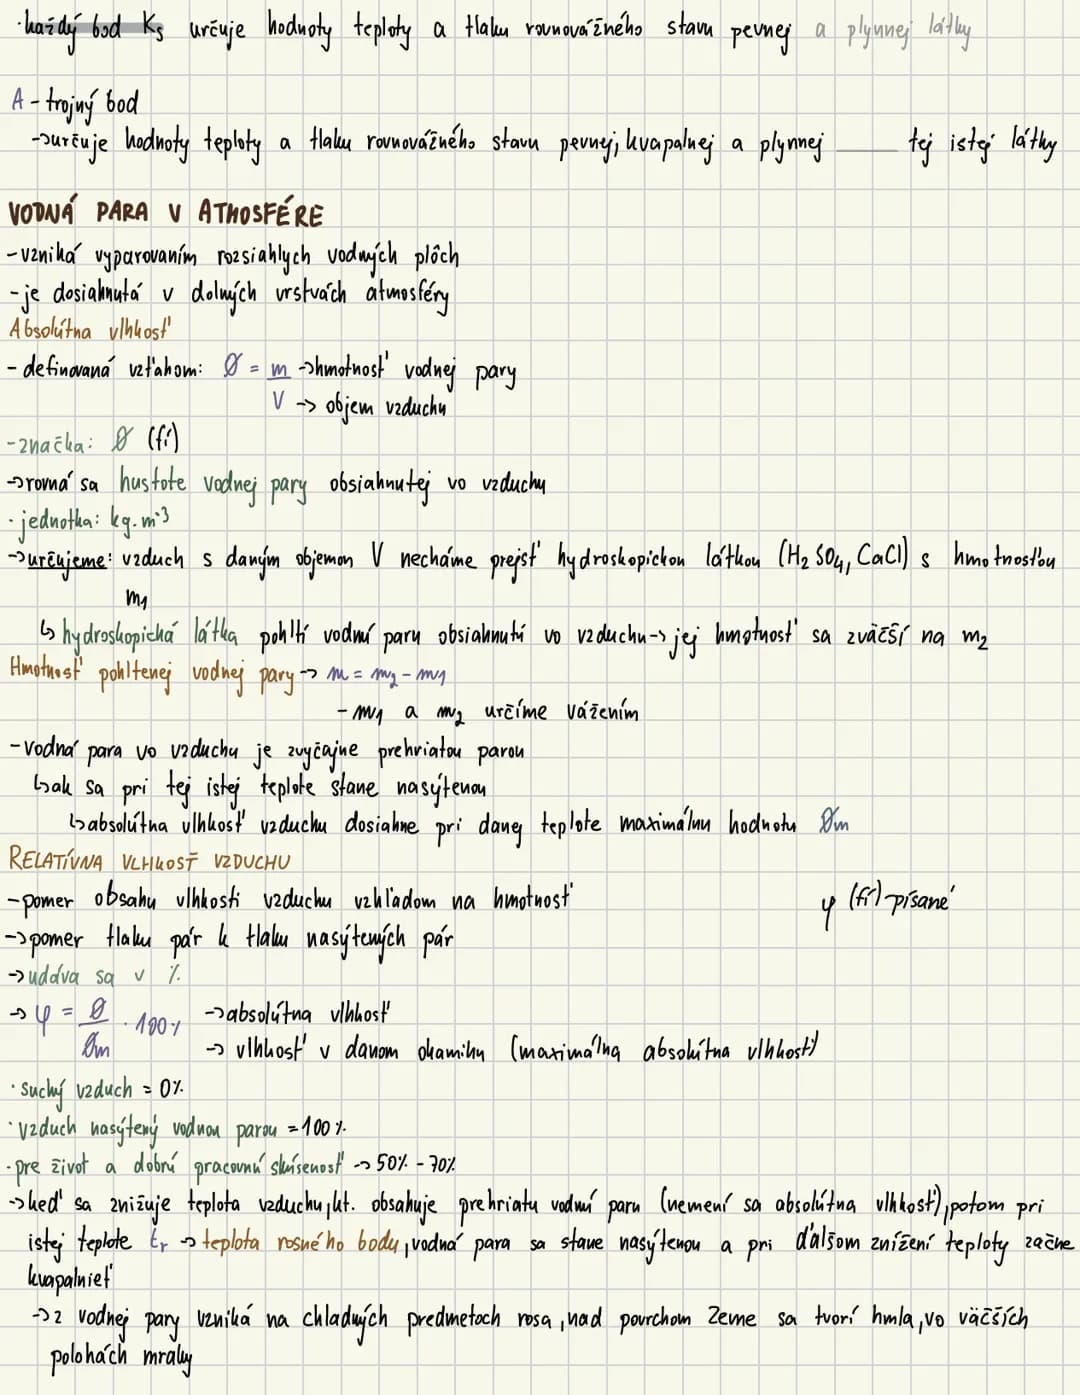 ·každý bod Ks určuje hodnoty teploty a tlaku rovnovážného stavu pevnej a plynnej látky
A - trojný bod
→určuje hodnoty teploty a tlaku rovnovážného stavu pevnej, kvapalnej a plynnej ____ tej istej látky
VODNÁ PARA V ATMOSFÉRE
-vzniká vyparovaním rozsiahlych vodných plôch
-je dosiahnutá v dolných vrstvách atmosféry
Absolútna vlhkosť
- definovaná vzťahom: Ø = m →hmotnosť vodnej pary
V → objem vzduchu
-značka: Ø (fí)
→rovná sa hustote vodnej pary obsiahnutej vo vzduchu
· jednotka: kg.m⁻³
→určujeme: vzduch s daným objemom V necháme prejsť hydroskopickou látkou (H₂SO₄, CaCl) s hmotnosťou
m₁
↳ hydroskopická látka pohltí vodnú paru obsiahnutú vo vzduchu→ jej hmotnosť sa zväčší na m₂
Hmotnosť pohltenej vodnej pary → m = m₂ - m₁
- m₁ a m₂ určíme vážením
-vodná para vo vzduchu je zvyčajne prehriatou parou
↳ak sa pri tej istej teplote stane nasýtenou
↳absolútna vlhkosť vzduchu dosiahne pri danej teplote maximálnu hodnotu Øm
RELATÍVNA VLHKOSŤ VZDUCHU
-pomer obsahu vlhkosti vzduchu vzhľadom na hmotnosť φ (fí) písané
→pomer tlaku pár k tlaku nasýtených pár
→udáva sa v %
→ φ = Ø/Øm · 100% →absolútna vlhkosť
→ vlhkosť v danom okamihu (maximálna absolútna vlhkosť)
· suchý vzduch = 0%
· vzduch nasýtený vodnou parou = 100%
· pre život a dobrú pracovnú skúsenosť → 50% - 70%
→keď sa znižuje teplota vzduchu, kt. obsahuje prehriatu vodnú paru (nemení sa absolútna vlhkosť), potom pri
istej teplote tr → teplota rosného bodu, vodná para sa stane nasýtenou a pri ďalšom znížení teploty začne
kvapalnieť
→z vodnej pary vzniká na chladných predmetoch rosa, nad povrchom Zeme sa tvorí hmla, vo väčších
polohách mraky